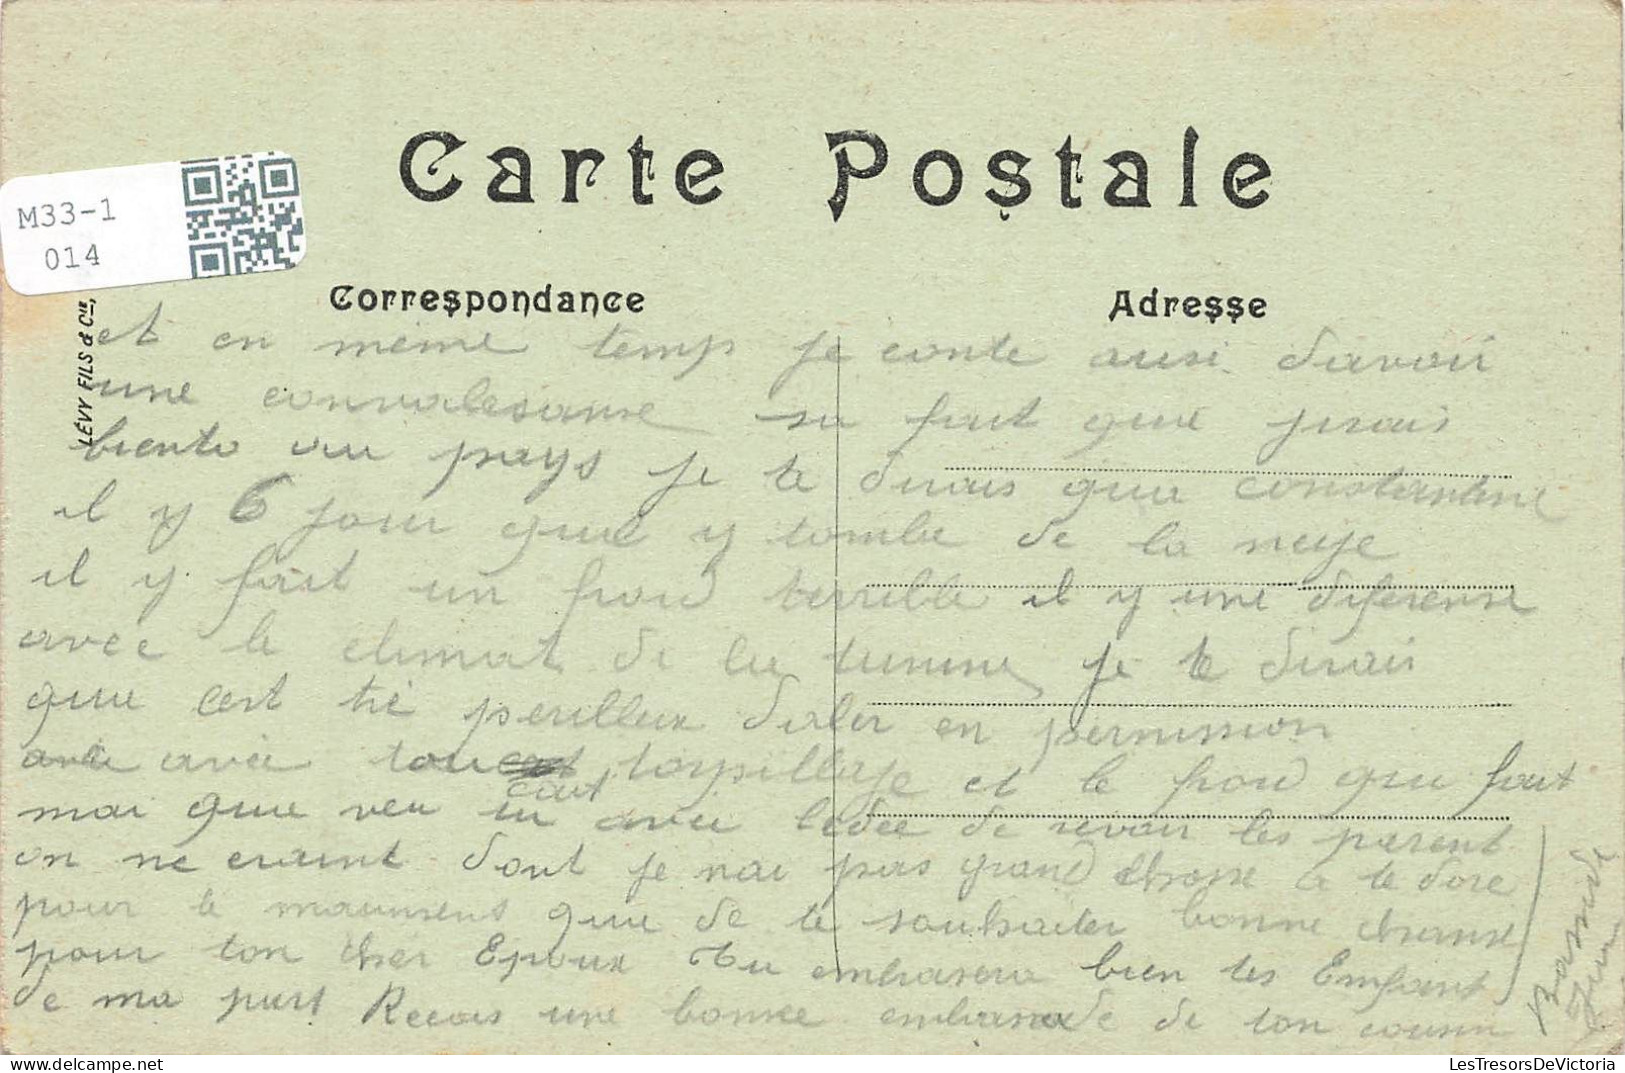 Carte Postale
M33-1
014
Correspondance
Adresse
LÉVY FILS & Cie,
et en meme temp je conte ausi davoir
une convalesanse sa fait que jirais
biento au pays je te dirais que constantine
il y 6 jour que y tombe de la neije
il y fait un froid terrible il y une diferense
avec le climat de la tunine je te dirais
que cest tré perilleux daler en permission
avec tout cest torpillaje et le froid qui fait
mai que veu tu avec lidée de revoir les parent
on ne craint dont je nai pas grand chose a te dire
pour le maument que de te souhaiter bonne chanse
pour ton cher Epoux Tu embrasera bien tes Enfant
de ma part Recois une bonne embrasade de ton cousin
LesTresorsDeVictoria